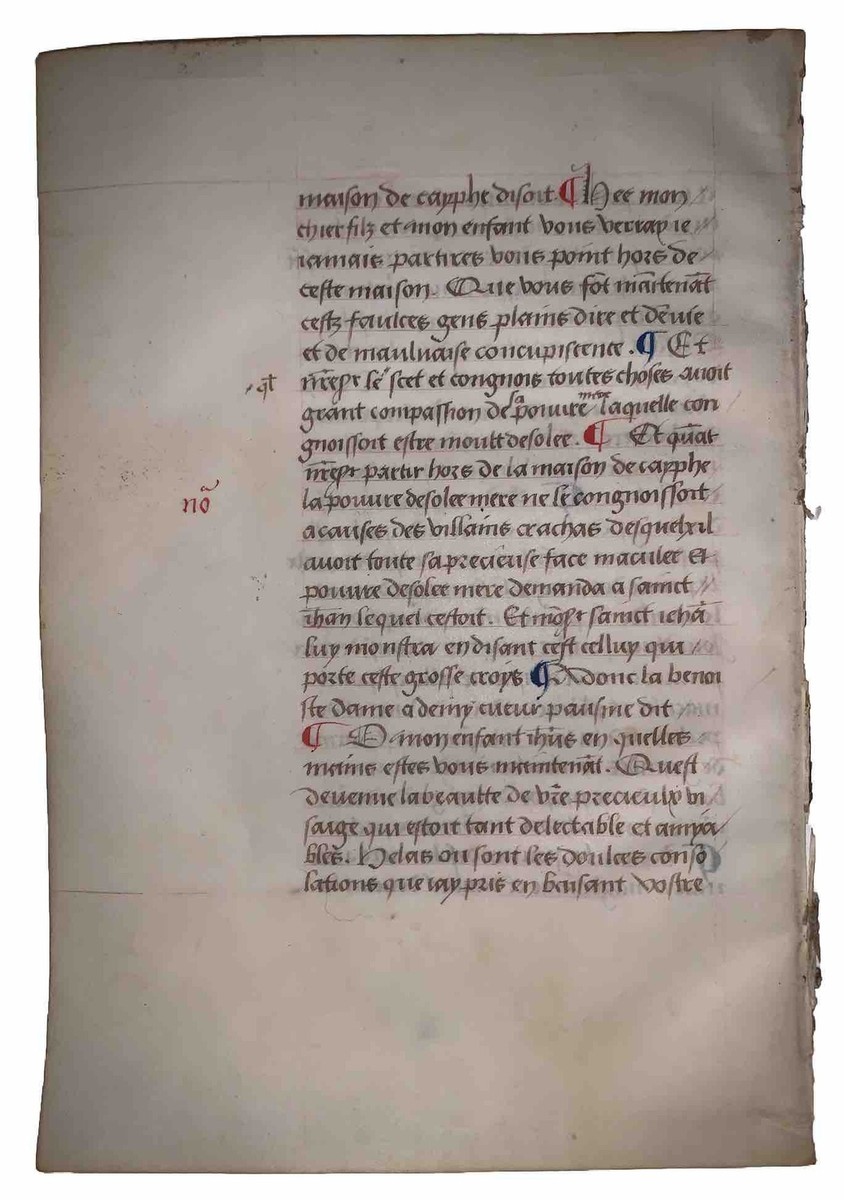 maison de cayphe disoit ¶ Hee mon
chier filz et mon enfant vous verray ie
iamais partires vous point hors de
ceste maison. Que vous fõt maĩtenãt
cestz faulces gens plains dire et dẽuie
et de mauluaise concupiscence. ¶ Et
qũt
le scet et congnois toutes choses auoit
grant compassion de sa pouure mere laquelle con
gnoissoit estre moult desolee. ¶ Et quãt
nõ
partir hors de la maison de cayphe
la pouure desolee mere ne le congnoissoit
a causes des villains crachas desquelx il
auoit toute sa precieuse face maculee Et
pouure desolee mere demanda a sainct
ihan lequel cestoit. Et sainct iehã
luy monstra en disant cest celluy qui
porte ceste grosse croys ¶ Adonc la benoi
ste dame a demy cueur pausme dit
¶ O mon enfant ihũs en quelles
mains estes vous maintenãt. Quest
deuenue la beaulte de vr̃e precieulx vi
saige qui estoit tant delectable et amya
bles. Helas ou sont les doulces conso
lations que iay pris en baisant vostre